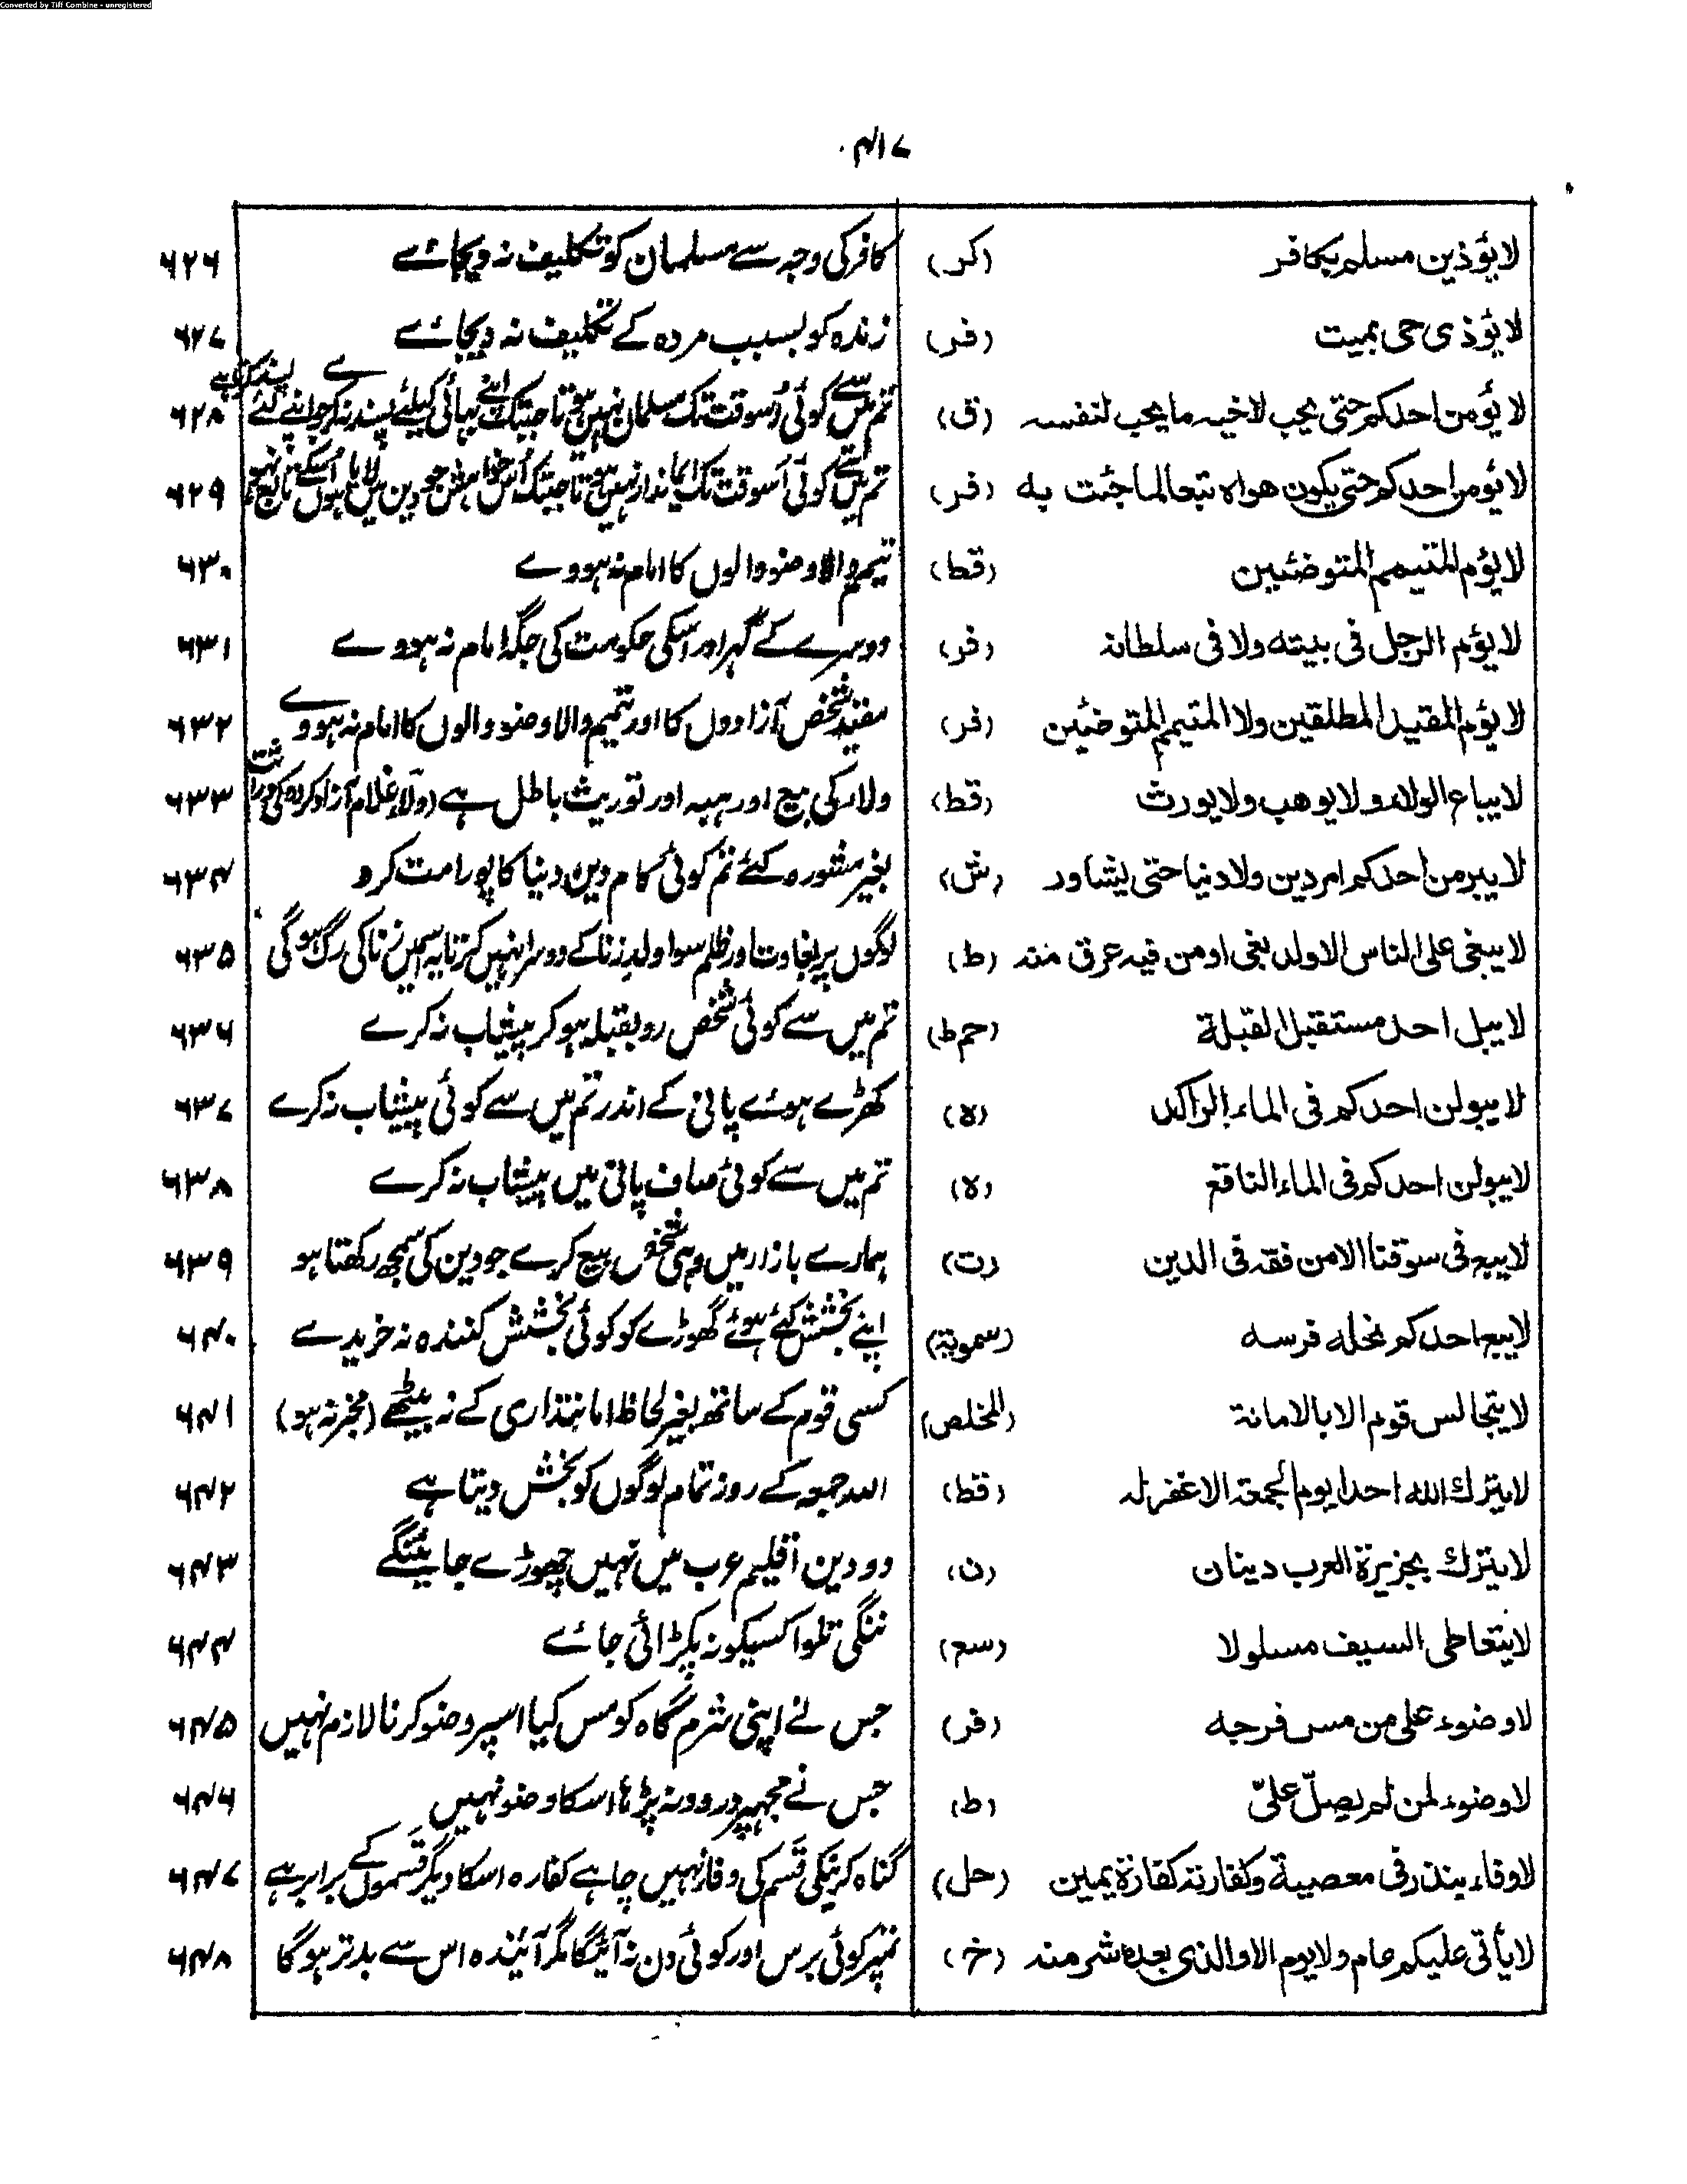 Converted by Tiff Combine - unregistered
۴۱۷
لا یؤذین مسلم بکافر (کر) کافر کی وجہ سے مسلمان کو تکلیف نہ دیجائے ۶۲۶
لا یؤذی حی بمیت (فر) زندہ کو بسبب مردہ کے تکلیف نہ دیجائے ۶۲۷
لا یؤمن احدکم حتی یحب لاخیہ ما یحب لنفسہ (ق) تم میں سے کوئی اُسوقت تک مسلمان نہیں ہوتا جبتک اپنے بہائی کیلئے پسند نہ کرے جو اپنے لئے پسند کرتا ہے ۶۲۸
لا یؤمن احدکم حتی یکون ھواہ تبعا لما جئت بہ (فر) تم میں سے کوئی اُسوقت تک ایماندار نہیں ہوتا جبتک اُس خواہش جو دین میں لایا ہوں اُسکے تابع نہو ۶۲۹
لا یؤم المتیمم المتوضئین (قط) تیمم والا وضو والوں کا امام نہ ہووے ۶۳۰
لا یؤم الرجل فی بیتہ ولا فی سلطانہ (فر) دوسرے کے گہر اور اسکی حکومت کی جگہ امام نہ ہووے ۶۳۱
لا یؤم المقید المطلقین ولا المتیمم المتوضئین (فر) مقید شخص آزادوں کا اور تیمم والا وضو والوں کا امام نہ ہووے ۶۳۲
لا یباع الولاء ولا یوھب ولا یورث (قط) ولاء کی بیع اور ہبہ اور توریث باطل ہے (ولاء غلام آزاد کردہ کی وراثت ۶۳۳
لا یبرمن احدکم امر دین ولا دنیا حتی یشاور (ش) بغیر مشورہ کئے تم کوئی کام دین دنیا کا پورا مت کرو ۶۳۴
لا یبغی علی الناس الا ولد بغی او من فیہ عرق منہ (ط) لوگوں پر بغاوت اور ظلم سوا ولد زنا کے دوسرا نہیں کرتا یہ اسمیں زنا کی رگ ہوگی ۶۳۵
لا یبل احد مستقبل القبلة (حم ط) تم میں سے کوئی شخص رو بقبلہ ہو کر پیشاب نہ کرے ۶۳۶
لا یبولن احدکم فی الماء الراکد (ہ) کھڑے ہوئے پانی کے اندر تم میں سے کوئی پیشاب نہ کرے ۶۳۷
لا یبولن احدکم فی الماء الناقع (ہ) تم میں سے کوئی صاف پانی میں پیشاب نہ کرے ۶۳۸
لا یبیع فی سوقنا الا من فقہ فی الدین (ت) ہمارے بازار میں وہی شخص بیع کرے جو دین کی سمجھ رکھتا ہو ۶۳۹
لا یبیع احدکم نحلہ فرسہ (سمویة) اپنے بخشش کئے ہوئے گھوڑے کو کوئی بخشش کنندہ نہ خریدے ۶۴۰
لا یتجالس قوم الا بالامانة (المخلص) کسی قوم کے ساتھ بغیر لحاظ امانتداری کے نہ بیٹھے (مخبر نہ ہو) ۶۴۱
لا یترك اللہ احدا یوم الجمعة الا غفر لہ (قط) اللہ جمعہ کے روز تمام لوگوں کو بخش دیتا ہے ۶۴۲
لا یترك بجزیرة العرب دینان (ن) دو دین اقلیم عرب میں نہیں چھوڑے جائینگے ۶۴۳
لا یتعاطی السیف مسلولا (سع) ننگی تلوا کسیکو نہ پکڑائی جائے ۶۴۴
لا وضوء علی من مس فرجہ (فر) جس نے اپنی شرم گاہ کو مس کیا اسپر وضو کرنا لازم نہیں ۶۴۵
لا وضوء لمن لم یصلّ علیّ (ط) جس نے مجہپر درود نہ پڑہا اسکا وضو نہیں ۶۴۶
لا وفاء بنذر فی معصیة وکفارتہ کفارة یمین (حل) گناہ کرنیکی قسم کی وفا نہیں چاہے کفارہ اسکا دیگر قسموں کے برابر ہے ۶۴۷
لا یأتی علیکم عام ولا یوم الا والذی بعدہ شر منہ (خ) تمپر کوئی برس اور کوئی دن نہ آئیگا مگر آئیندہ اس سے بدتر ہوگا ۶۴۸